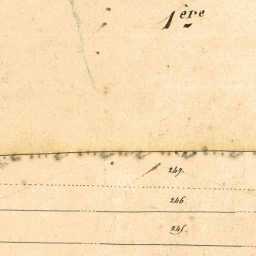 1ère
247.
246.
245.